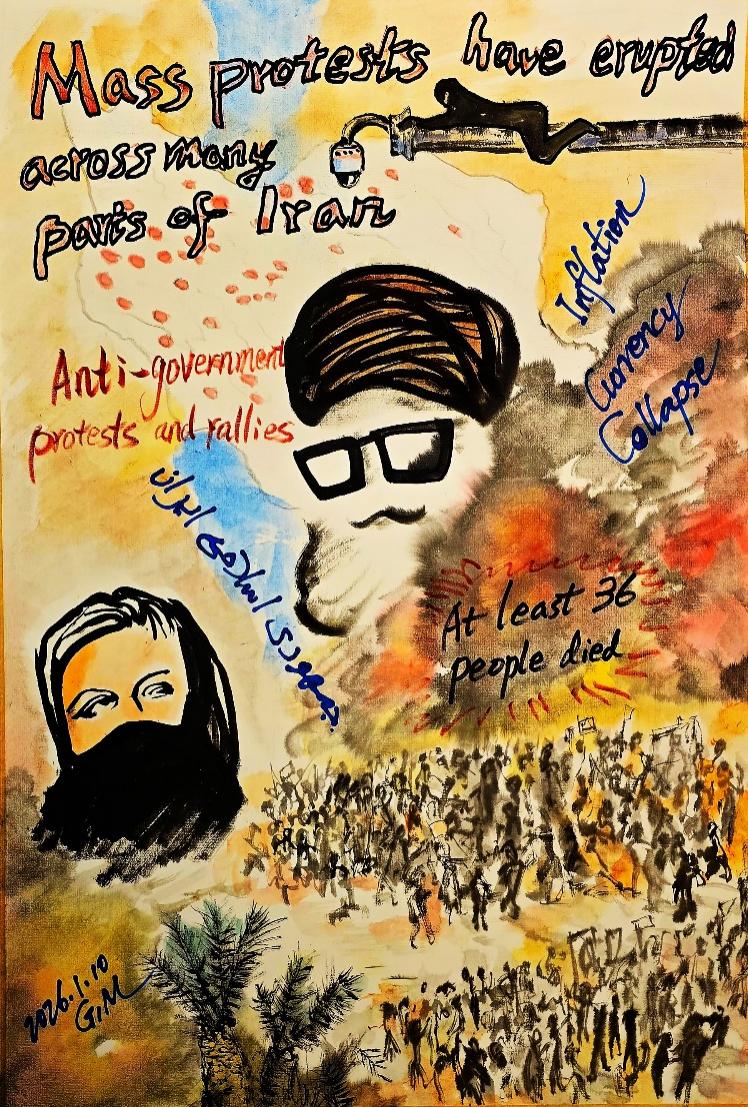 Mass protests have erupted
across many
parts of Iran
Inflation
Currency
Collapse
Anti-government
protests and rallies
جمهوری اسلامی ایران
At least 36
people died
2026.1.10
G.M